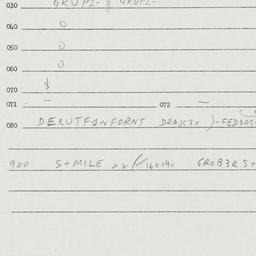 030 GRUP2- || GRUP2-
040 0
050 0
060 0
070 $
071 - 072 -
080 DERUTFANFORNT DRAJC3X )-FED3RS-
900 S+MILE xx (/160040 GROB3R S+